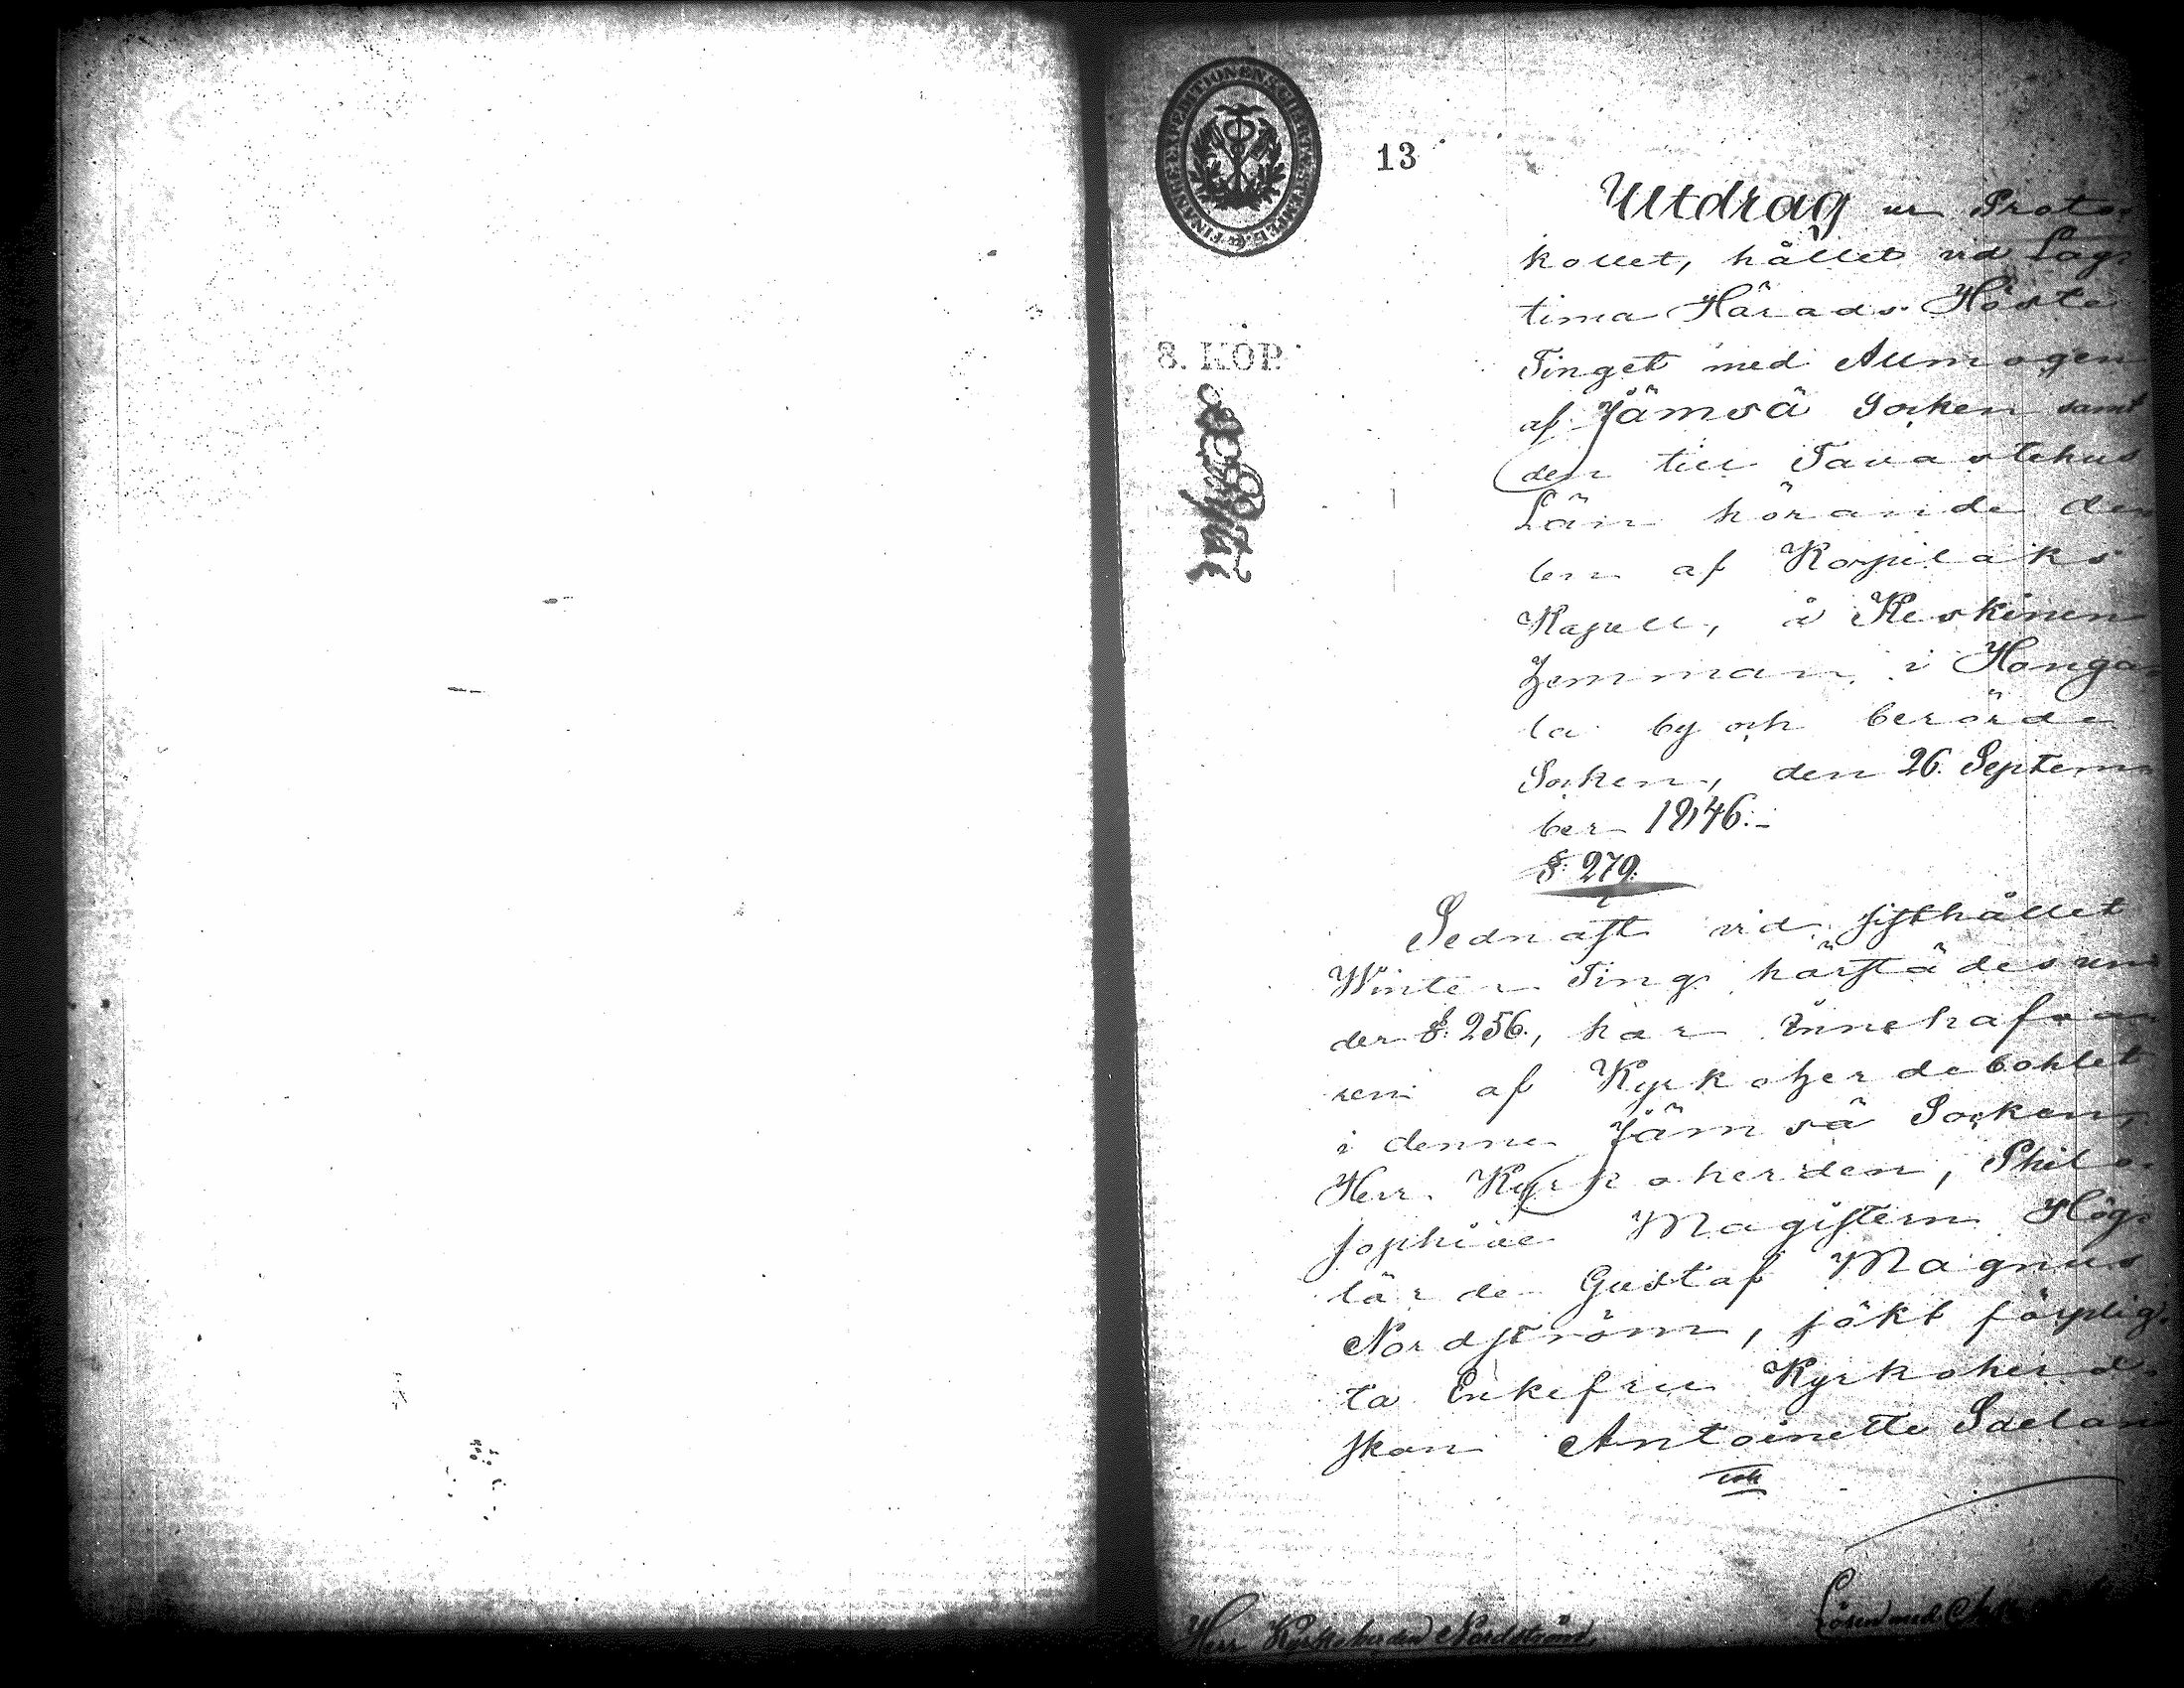 FINANCEEXPEDITIONENS CHARTÆ STEMPEL
13
8. KOP.
Utdrag ur Proto-
kollet, hållet vid Lag-
tima Härads Höste
Tinget med Allmogen
af Jämsä Socken samt
den till Tavastehus
Län hörande de-
len af Korpilaks
Kapell, å Keskinen
Hemman i Hanga-
la by och berörde
Socken, den 26. Septem-
ber 1846.-
§. 279.
Sednast vid sisthållet
Winter Ting härstädes un-
der §. 256., har Innehafva-
ren af Kyrkoherdebohlet
i denne Jämsä Socken,
Herr Kyrkoherden, Philo-
sophiæ Magistern Hög-
lärde Gustaf Magnus
Nordström, sökt förplig-
ta Enkefru Kyrkoherd-
skan Antoinette Saelan
Herr Kyrkoherden Nordström,
Lösen med